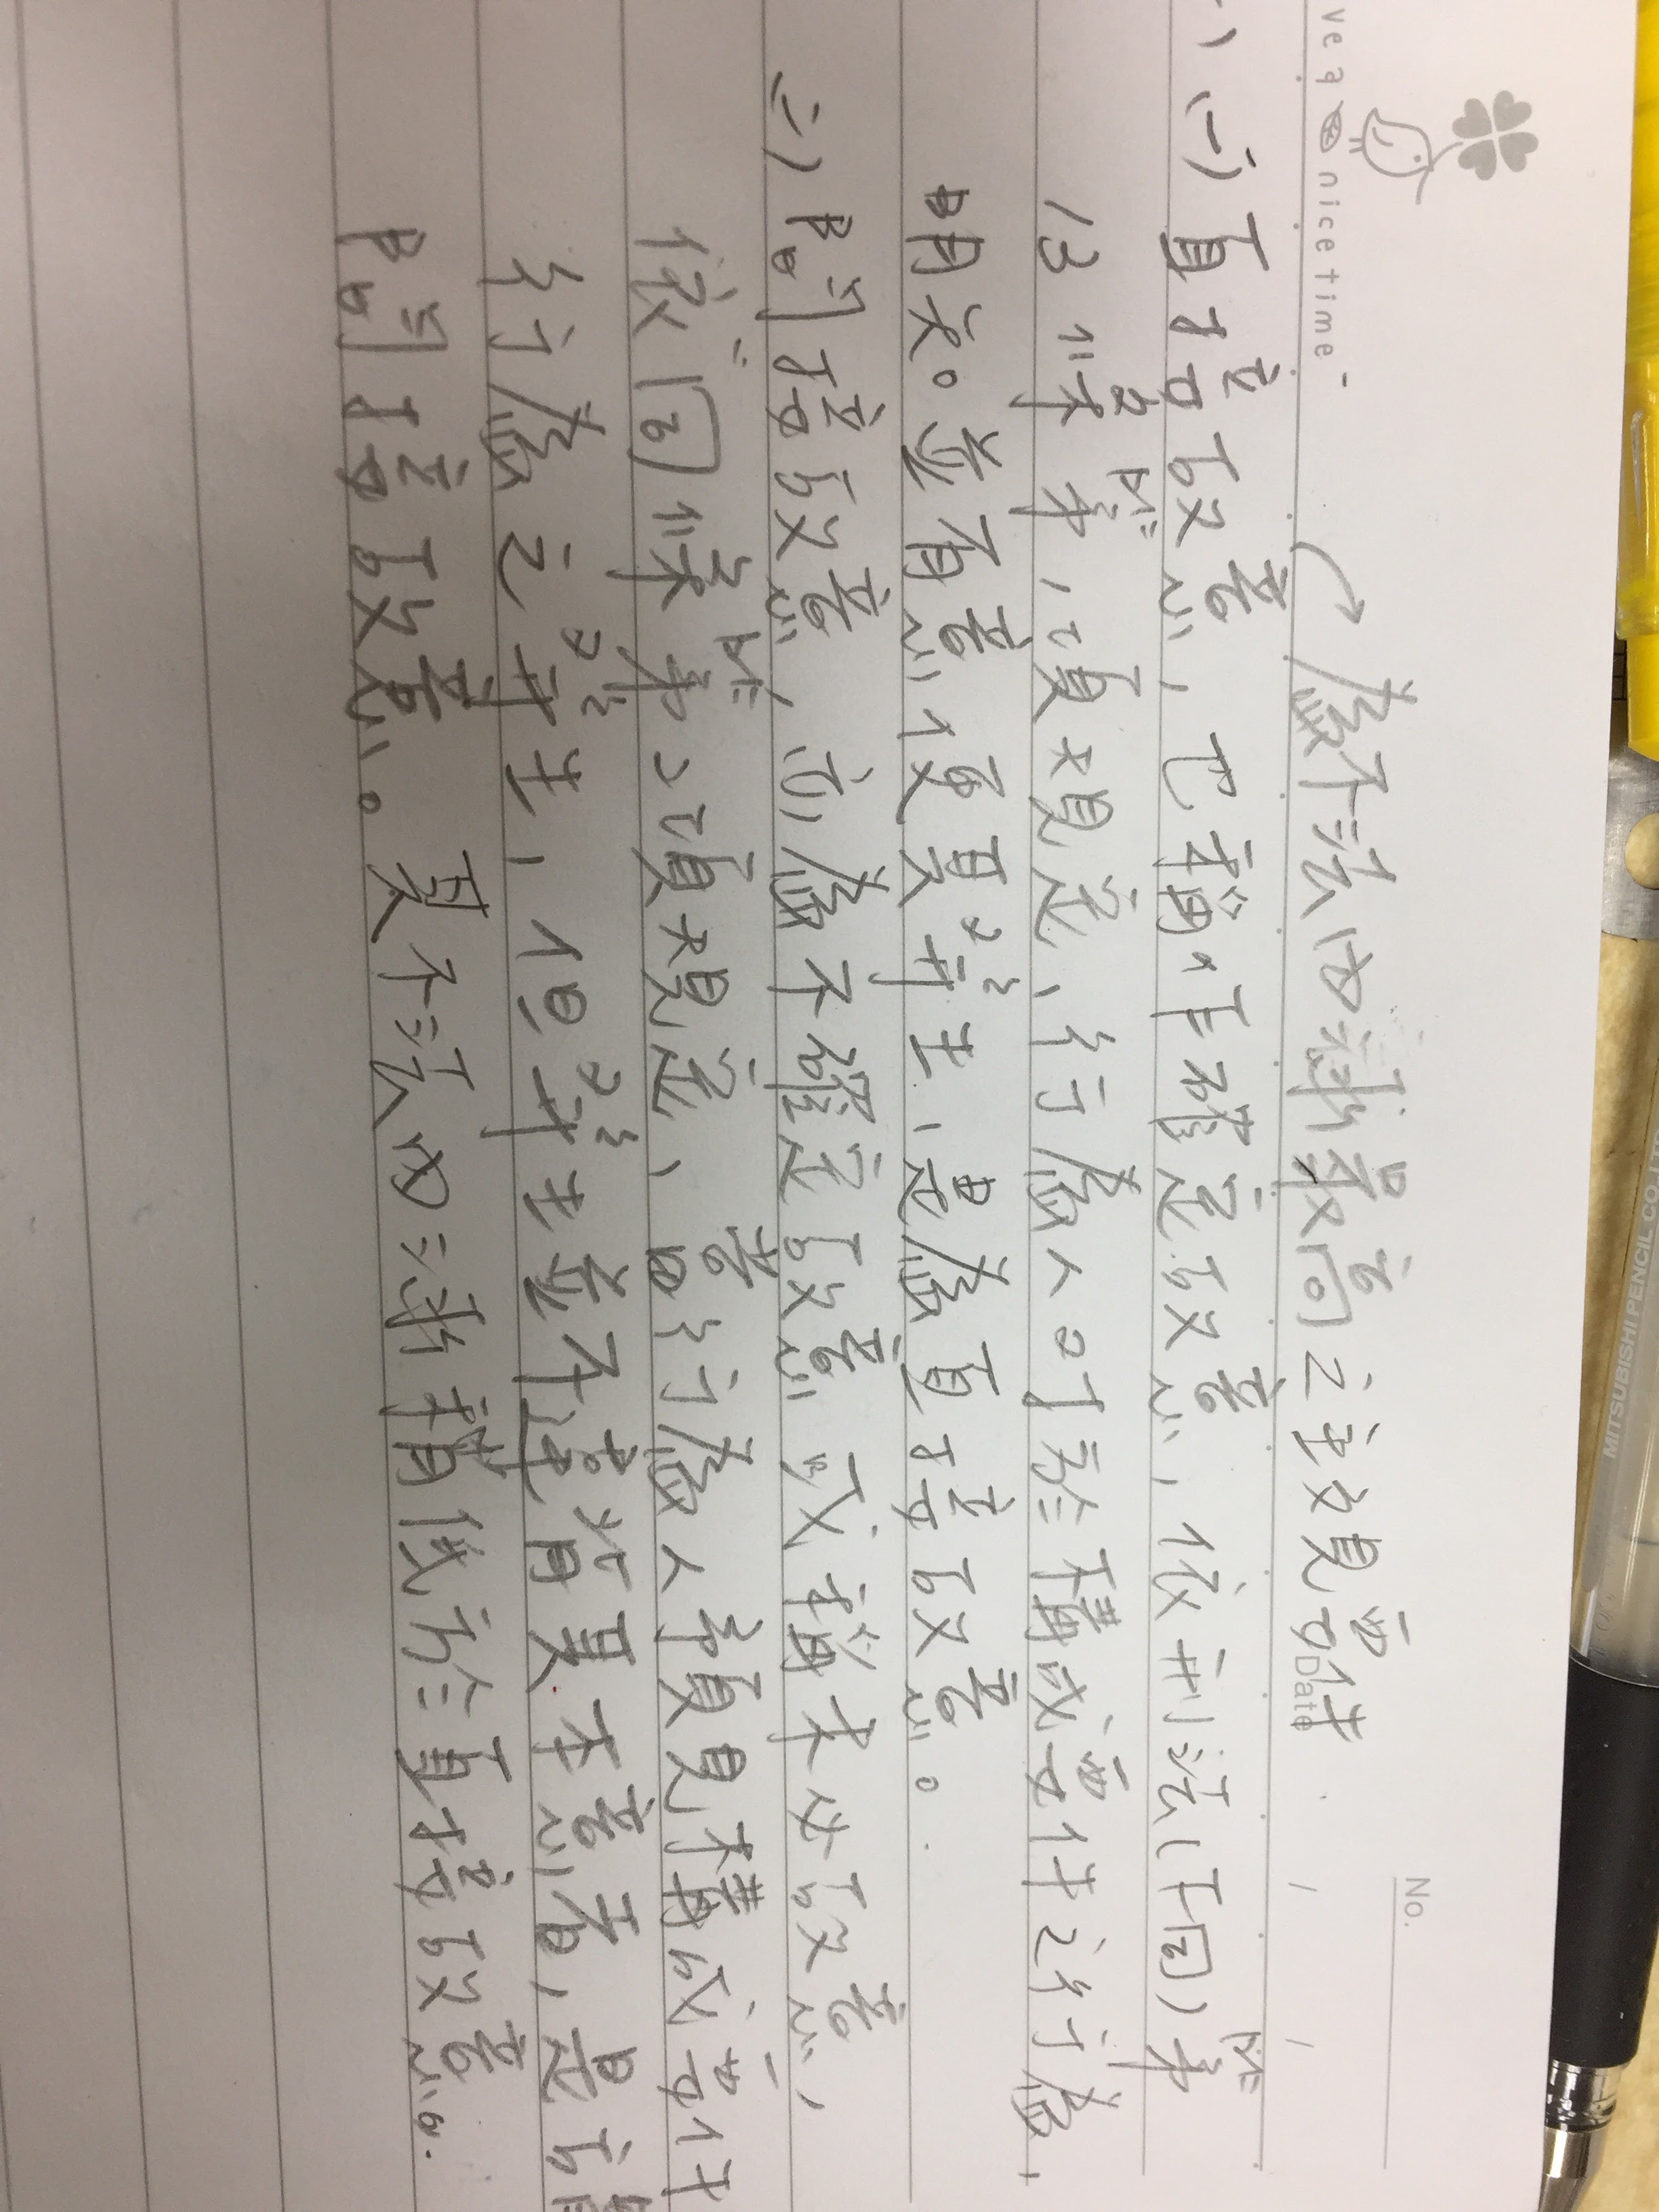 ve a nice time
No.
Date
為不法內涵最高之主觀要件
(一) 直接故意, 也稱作確定故意, 依刑法(下同)第
13條第1項規定, 行為人對於構成要件之行為,
明知並有意使其發生, 是為直接故意。
二) 間接故意, 亦為不確定故意或稱未必故意,
依同條第2項規定, 當行為人預見構成要件
行為之發生, 但發生並不違背其本意者, 是謂
間接故意。其不法內涵稍低於直接故意。
MITSUBISHI PENCIL CO., LTD